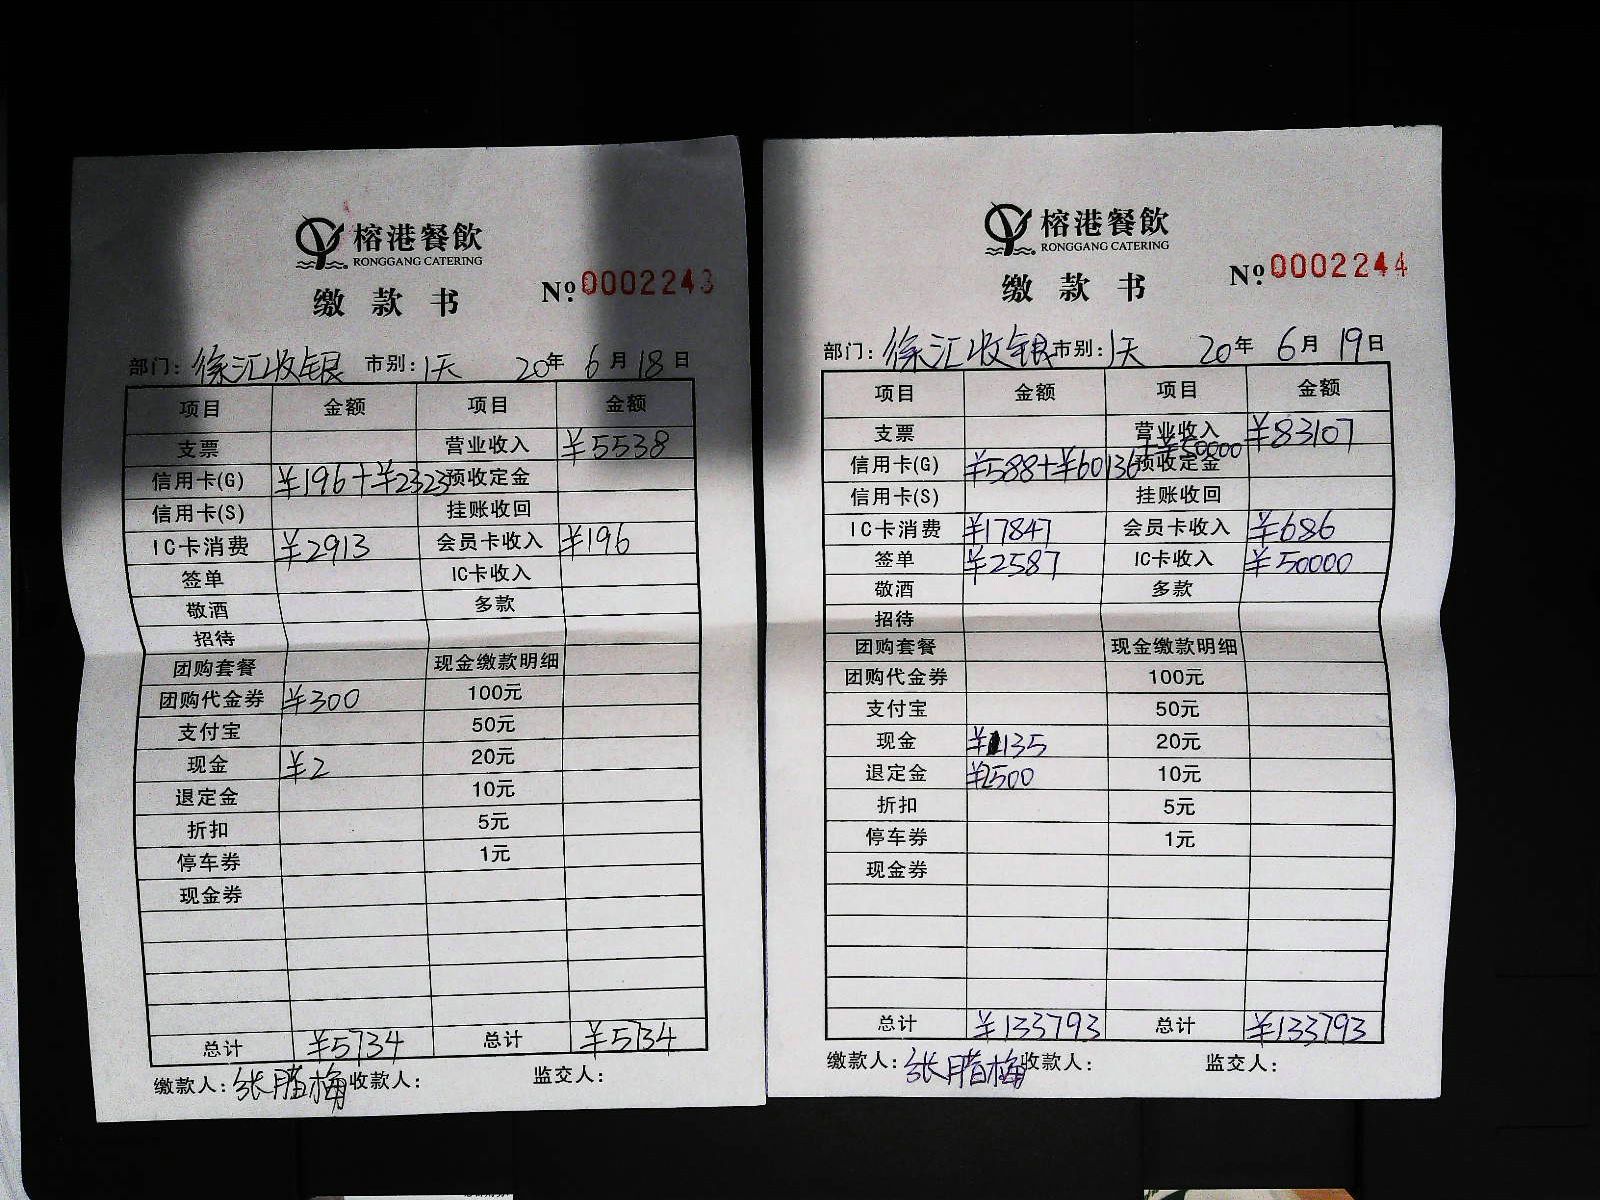 榕港餐飲
RONGGANG CATERING
缴款书 Nº.0002243
部门:徐汇收银 市别:1天 20年6月18日
项目 金额 项目 金额
支票 营业收入 ¥5538
信用卡(G) ¥196+¥2323 预收定金
信用卡(S) 挂账收回
IC卡消费 ¥2913 会员卡收入 ¥196
签单 IC卡收入
敬酒 多款
招待
团购套餐 现金缴款明细
团购代金券 ¥300 100元
支付宝 50元
现金 ¥2 20元
退定金 10元
折扣 5元
停车券 1元
现金券
总计 ¥5734 总计 ¥5734
缴款人:张腊梅 收款人: 监交人:
榕港餐飲
RONGGANG CATERING
缴款书 Nº.0002244
部门:徐汇收银 市别:1天 20年6月19日
项目 金额 项目 金额
支票 营业收入 ¥83107
信用卡(G) ¥588+¥60136+¥50000 预收定金
信用卡(S) 挂账收回
IC卡消费 ¥17847 会员卡收入 ¥686
签单 ¥2587 IC卡收入 ¥50000
敬酒 多款
招待
团购套餐 现金缴款明细
团购代金券 100元
支付宝 50元
现金 ¥2135 20元
退定金 ¥500 10元
折扣 5元
停车券 1元
现金券
总计 ¥133793 总计 ¥133793
缴款人:张腊梅 收款人: 监交人: